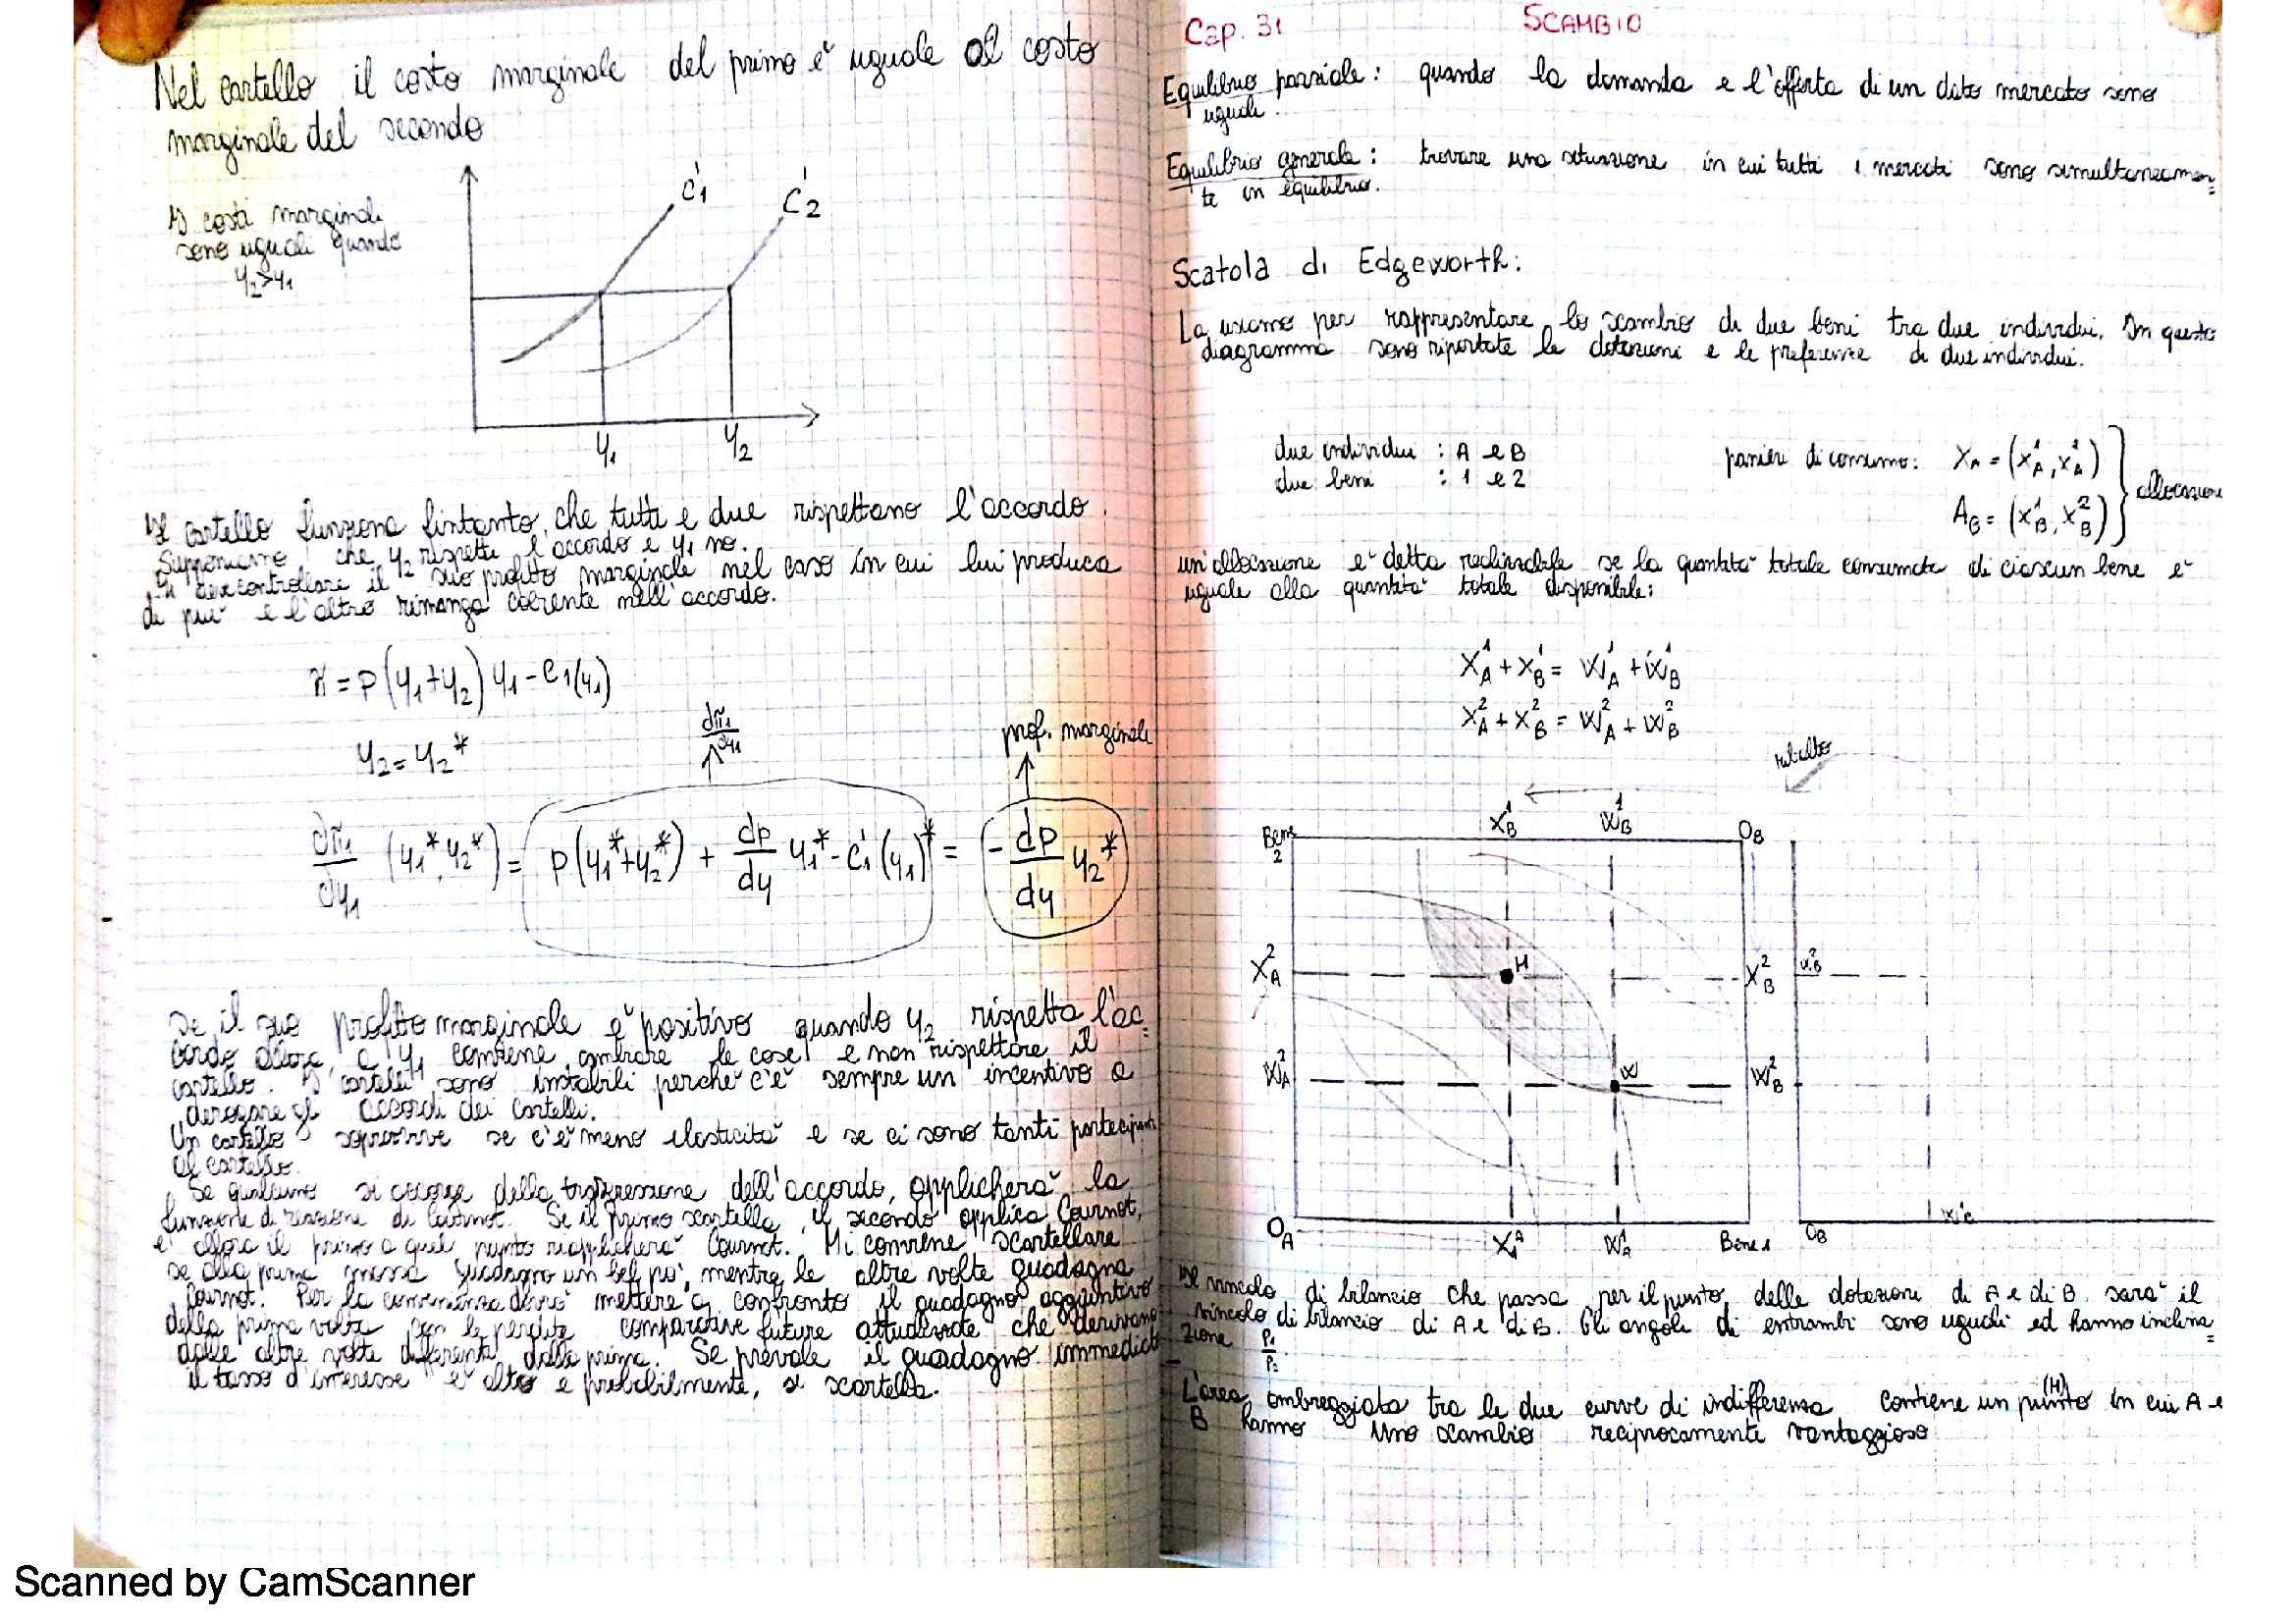 Nel cartello il costo marginale del primo è uguale al costo
marginale del secondo
I costi marginali
sono uguali quando
y2>y1
C'1
C'2
y1
y2
Il cartello funziona fintanto che tutti e due rispettano l'accordo.
Supponiamo che y2 rispetti l'accordo e y1 no.
y1 deve controllare il suo profitto marginale nel caso in cui lui produca
di più e l'altro rimanga coerente nell'accordo.
π = p(y1+y2) y1 - C1(y1)
y2 = y2*
dπ1/dy1
prof. marginale
dπ1/dy1 (y1*, y2*) = p(y1*+y2*) + dp/dy y1* - C'1(y1)* = - dp/dy y2*
Se il suo profitto marginale è positivo quando y2 rispetta l'ac=
cordo allora, a y1 conviene cambiare le cose e non rispettare il
cartello. I cartelli sono instabili perché c'è sempre un incentivo a
derogare gli accordi dei cartelli.
Un cartello sopravvive se c'è meno elasticità e se ci sono tanti partecipanti
al cartello.
Se qualcuno si accorge della trasgressione dell'accordo, applicherà la
funzione di reazione di Cournot. Se il primo scartella, il secondo applica Cournot,
e allora il primo a quel punto riapplicherà Cournot. Mi conviene scartellare
se alla prima mossa guadagno un bel po', mentre le altre volte guadagna
Cournot. Per la convenienza dovrò mettere a confronto il guadagno aggiuntivo
della prima volta con le perdite comparative future attualizzate che derivano
dalle altre volte differenti dalla prima. Se prevale il guadagno immediato
il tasso d'interesse è alto e probabilmente, si scartella.
Cap. 31 SCAMBIO
Equilibrio parziale: quando la domanda e l'offerta di un dato mercato sono
uguali.
Equilibrio generale: trovare una situazione in cui tutti i mercati sono simultaneamen=
te in equilibrio.
Scatola di Edgeworth:
La usiamo per rappresentare lo scambio di due beni tra due individui. In questo
diagramma sono riportate le dotazioni e le preferenze di due individui.
due individui : A e B
due beni : 1 e 2
panieri di consumo: XA = (x¹A, x²A)
AB = (x¹B, x²B)
allocazione
un'allocazione è detta realizzabile se la quantità totale consumata di ciascun bene è
uguale alla quantità totale disponibile:
X¹A + X¹B = W¹A + W¹B
X²A + X²B = W²A + W²B
ribalto
X¹B
W¹B
Bene
2
OB
X²A
H
X²B
W²B
W²A
W
W²B
OA
X1A
W¹A
Bene 1
OB
Il vincolo di bilancio che passa per il punto delle dotazioni di A e di B sarà il
vincolo di bilancio di A e di B. Gli angoli di entrambi sono uguali ed hanno inclina=
zione P1/P2
L'area ombreggiata tra le due curve di indifferenza contiene un punto (H) in cui A e
B hanno uno scambio reciprocamente vantaggioso
Scanned by CamScanner